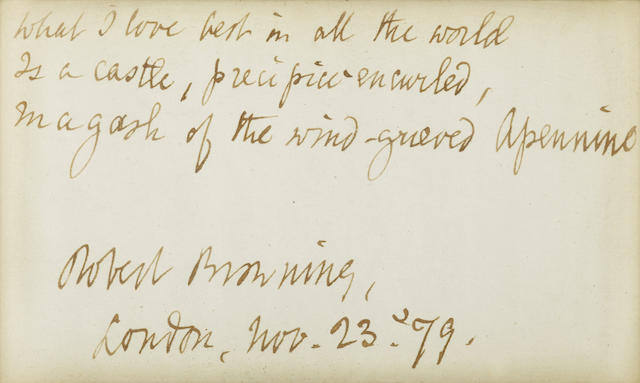 What I love best in all the world
Is a castle, precipice-encurled,
In a gash of the wind-grieved Apennine
Robert Browning,
London, Nov. 23. '79.